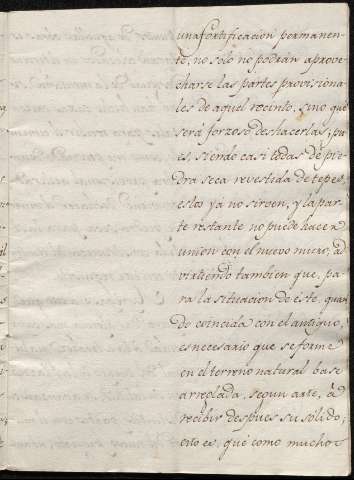 una fortificacion permanen-
te, no solo no podran aprove-
charse las partes provisiona-
les de aquel recinto, sino que
será forzoso deshacerlas; pu-
es, siendo casi todas de pie-
dra seca revestida de tepes,
estos ya no sirven, y la par-
te restante no puede hacer
union con el nuevo muro; ad-
virtiendo tambien que, pa-
ra la situacion de éste, quan-
do coincida con el antiguo,
es necesario que se forme
en el terreno natural base
arreglada, segun arte, à
recibir despues su sólido;
esto es, que como muchos